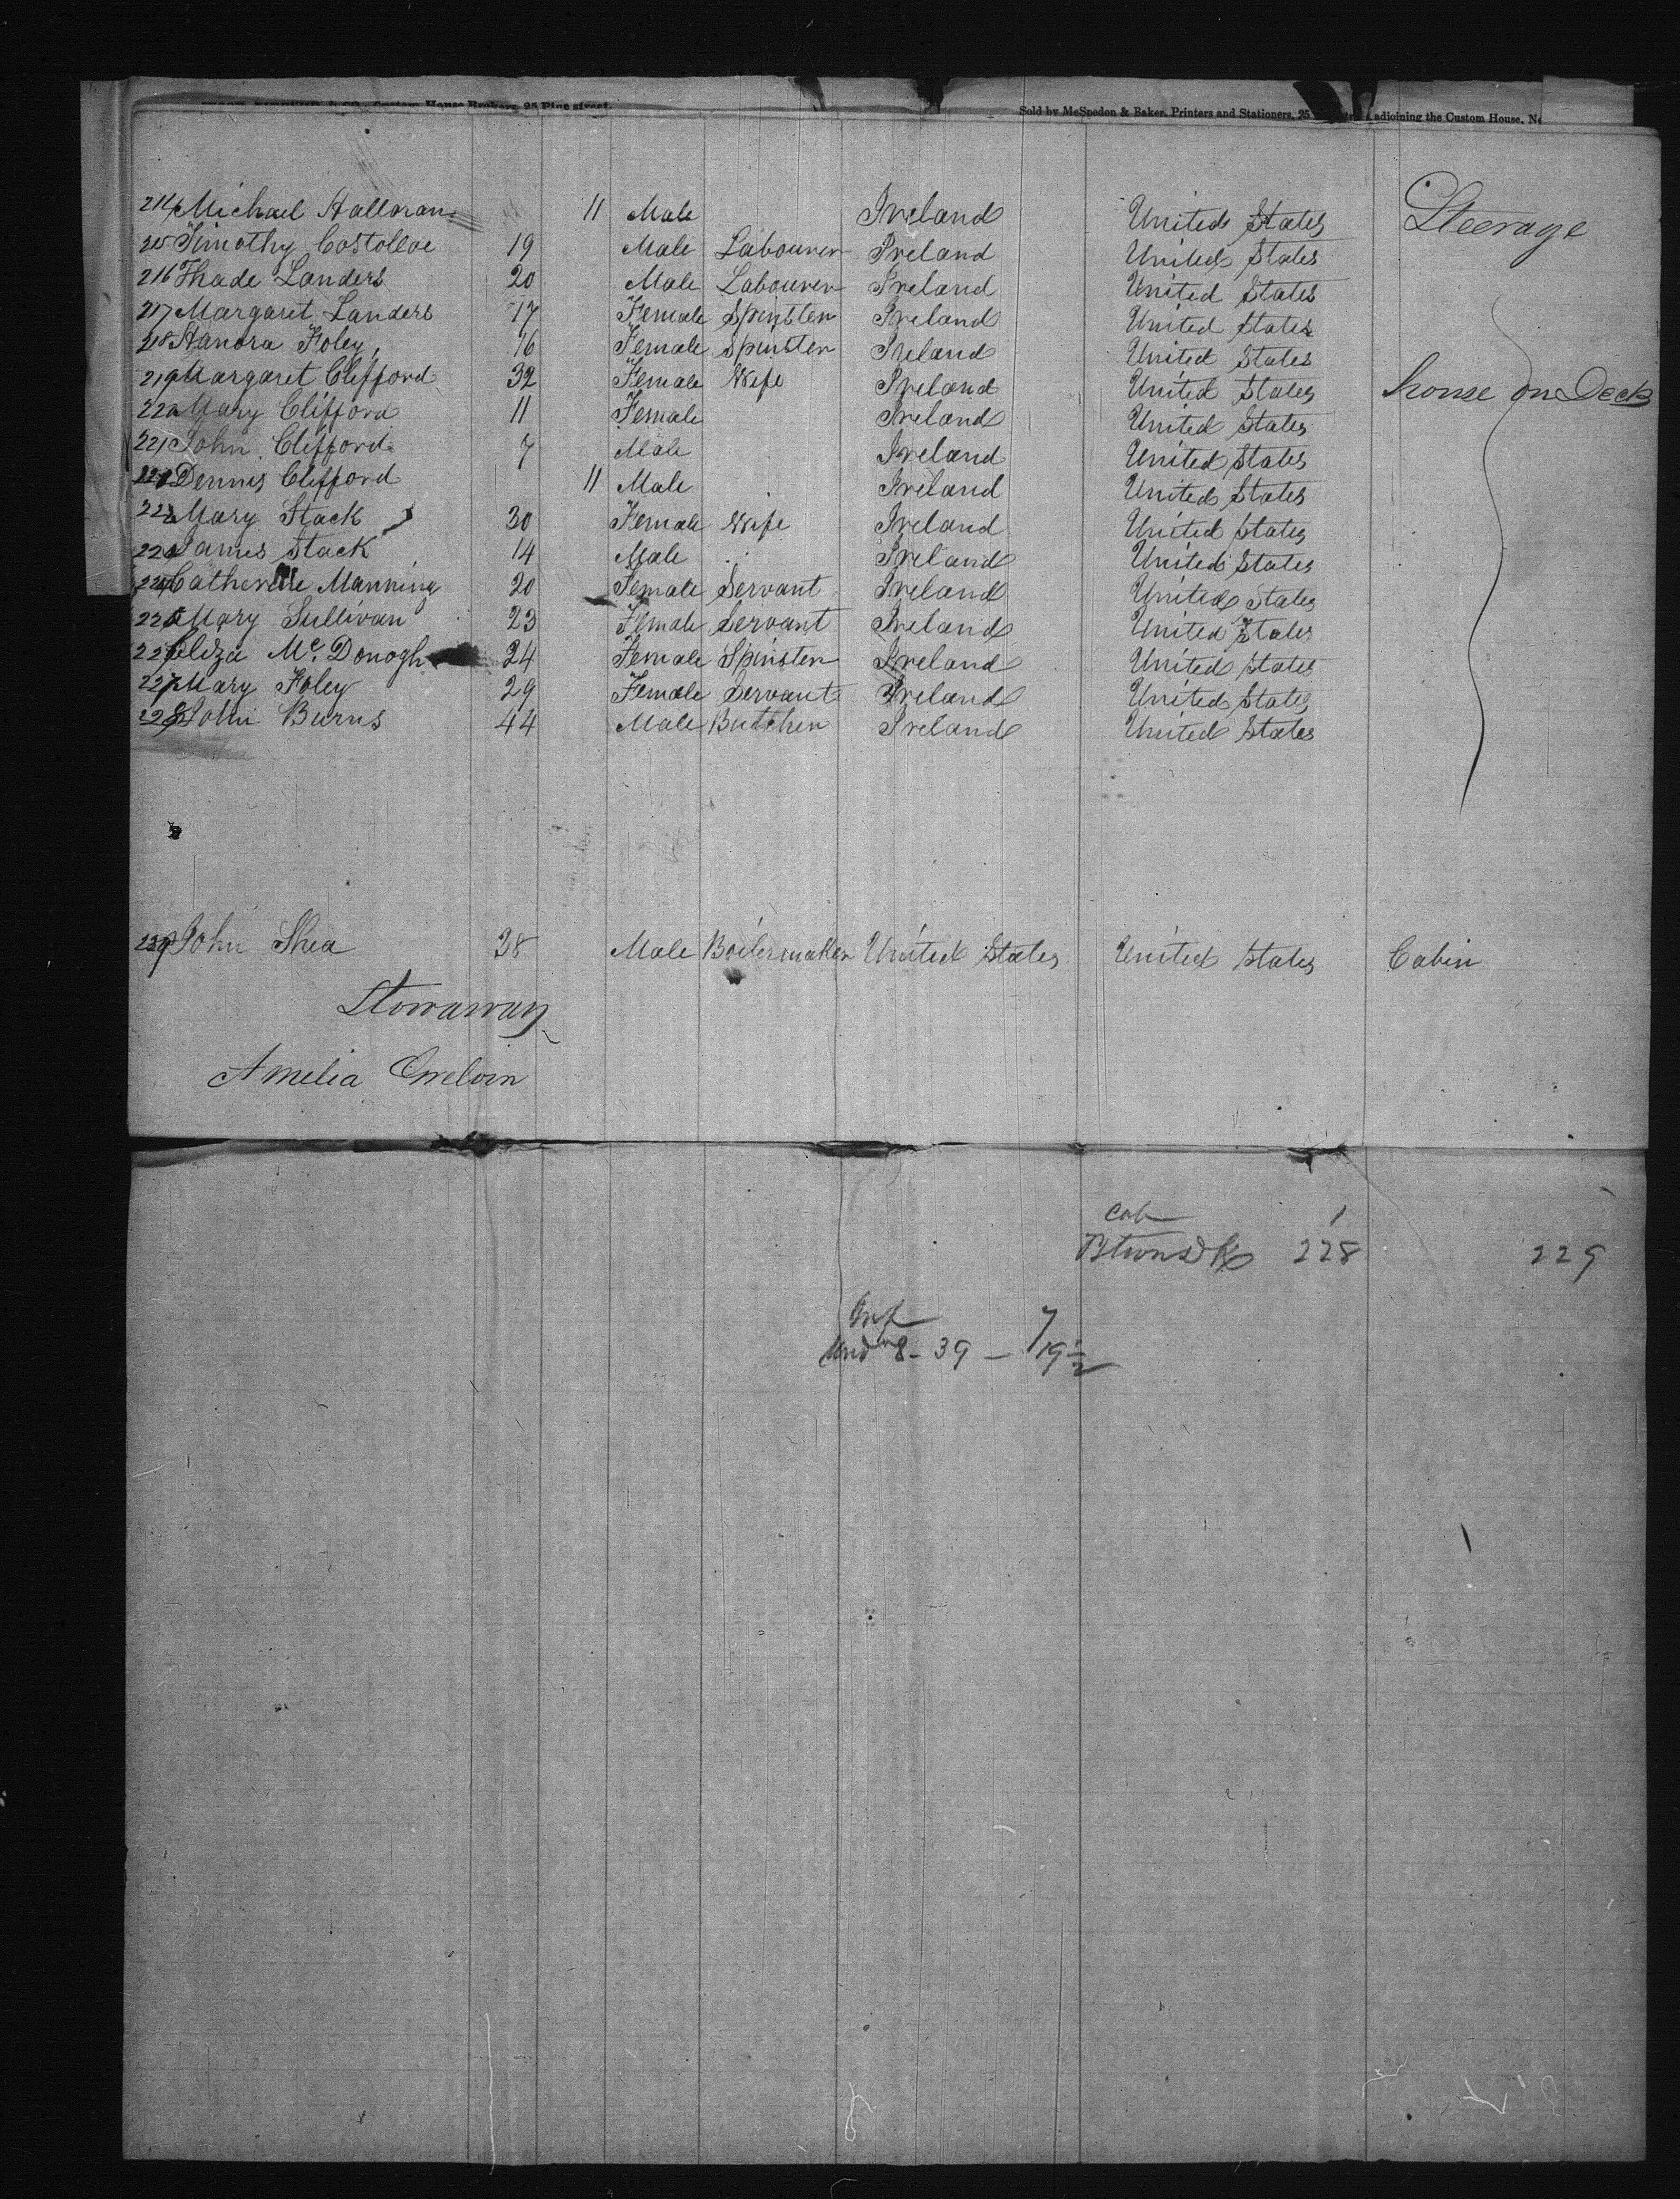 Custom House Brokers, 25 Pine street. Sold by McSpedon & Baker, Printers and Stationers, 25 adjoining the Custom House,
214 Michael Halloran 11 Male Ireland United States Steerage
215 Timothy Costolloe 19 Male Labourer Ireland United States
216 Thade Landers 20 Male Labourer Ireland United States
217 Margaret Landers 17 Female Spinster Ireland United States
218 Hanora Foley 16 Female Spinster Ireland United States
219 Margaret Clifford 32 Female Wife Ireland United States house on Deck
220 Mary Clifford 11 Female Ireland United States
221 John Clifford 7 Male Ireland United States
Dennis Clifford 11 Male Ireland United States
Mary Stack 30 Female Wife Ireland United States
James Stack 14 Male Ireland United States
Catherine Manning 20 Female Servant Ireland United States
Mary Sullivan 23 Female Servant Ireland United States
Eliza Mc. Donogh 24 Female Spinster Ireland United States
227 Mary Foley 29 Female Servant Ireland United States
228 John Burns 44 Male Butcher Ireland United States
229 John Shea 28 Male Boilermaker United States United States Cabin
Stowaway
Amelia
Cab 1
228 229
Inf 7
Und 8 - 39 - 19 1/2